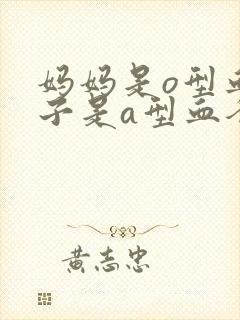 妈妈是o型
子是a型血
黄志忠